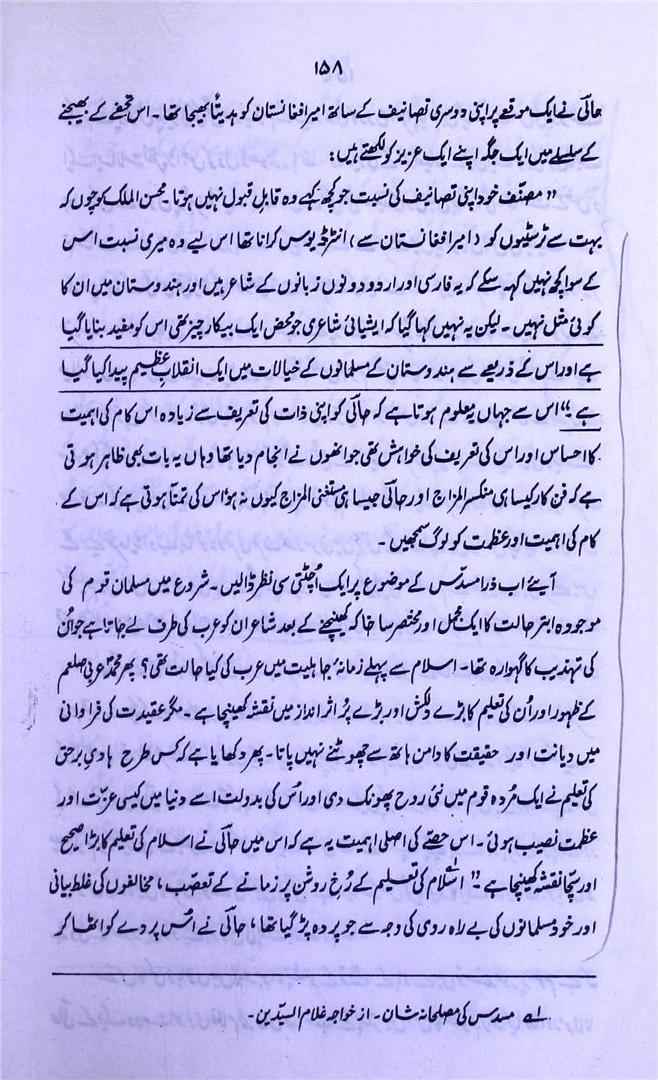 ۱۵۸
حالیؔ نے ایک موقعے پر اپنی دوسری تصانیف کے ساتھ امیر افغانستان کو ہدیتاً بھیجا تھا۔ اس تحفے کے بھیجنے
کے سلسلے میں ایک جگہ اپنے ایک عزیز کو لکھتے ہیں:
" مصنّف خود اپنی تصانیف کی نسبت جو کچھ کہے وہ قابلِ قبول نہیں ہوتا۔ محسن الملک کو چوں کہ
بہت سے ٹرسٹیوں کو (امیر افغانستان سے) انٹرڈیوس کرانا تھا اس لیے وہ میری نسبت اس
کے سوا کچھ نہیں کہہ سکے کہ یہ فارسی اور اردو دونوں زبانوں کے شاعر ہیں اور ہندوستان میں ان کا
کوئی مثل نہیں۔ لیکن یہ نہیں کہا گیا کہ ایشیائی شاعری جو محض ایک بیکار چیز تھی اس کو مفید بنایا گیا
ہے اور اس کے ذریعے سے ہندوستان کے مسلمانوں کے خیالات میں ایک انقلابِ عظیم پیدا کیا گیا
ہے؛" اس سے جہاں یہ معلوم ہوتا ہے کہ حالیؔ کو اپنی ذات کی تعریف سے زیادہ اس کام کی اہمیت
کا احساس اور اس کی تعریف کی خواہش تھی جو انھوں نے انجام دیا تھا وہاں یہ بات بھی ظاہر ہوتی
ہے کہ فن کار کیسا ہی منکسر المزاج اور حالیؔ جیسا ہی مستغنی المزاج کیوں نہ ہو، اس کی تمنّا ہوتی ہے کہ اس کے
کام کی اہمیت اور عظمت کو لوگ سمجھیں۔
آیئے اب ذرا مسدّس کے موضوع پر ایک اُچٹتی سی نظر ڈالیں۔ شروع میں مسلمان قوم کی
موجودہ ابتر حالت کا ایک مجمل اور مختصر سا خاکہ کھینچنے کے بعد شاعر ان کو عرب کی طرف لے جاتا ہے جو اُن
کی تہذیب کا گہوارہ تھا۔ اسلام سے پہلے زمانۂ جاہلیت میں عرب کی کیا حالت تھی؟ پھر محمدؐ عربی صلعم
کے ظہور اور اُن کی تعلیم کا بڑے دلکش اور بڑے پُر اثر انداز میں نقشہ کھینچا ہے۔ مگر عقیدت کی فراوانی
میں دیانت اور حقیقت کا دامن ہاتھ سے چھوٹنے نہیں پاتا۔ پھر دکھایا ہے کہ کس طرح ہادیِ برحق
کی تعلیم نے ایک مُردہ قوم میں نئی روح پھونک دی اور اُس کی بدولت اسے دنیا میں کیسی عزّت اور
عظمت نصیب ہوئی۔ اس حصّے کی اصلی اہمیت یہ ہے کہ اس میں حالیؔ نے اسلام کی تعلیم کا بڑا صحیح
اور سچّا نقشہ کھینچا ہے۔" اسلام کی تعلیم کے رُخِ روشن پر زمانے کے تعصّب، مخالفوں کی غلط بیانی
اور خود مسلمانوں کی بے راہ روی کی وجہ سے جو پردہ پڑ گیا تھا، حالیؔ نے اُس پردے کو اٹھا کر
لے مسدس کی مصلحانہ شان۔ از خواجہ غلام السیّدین۔